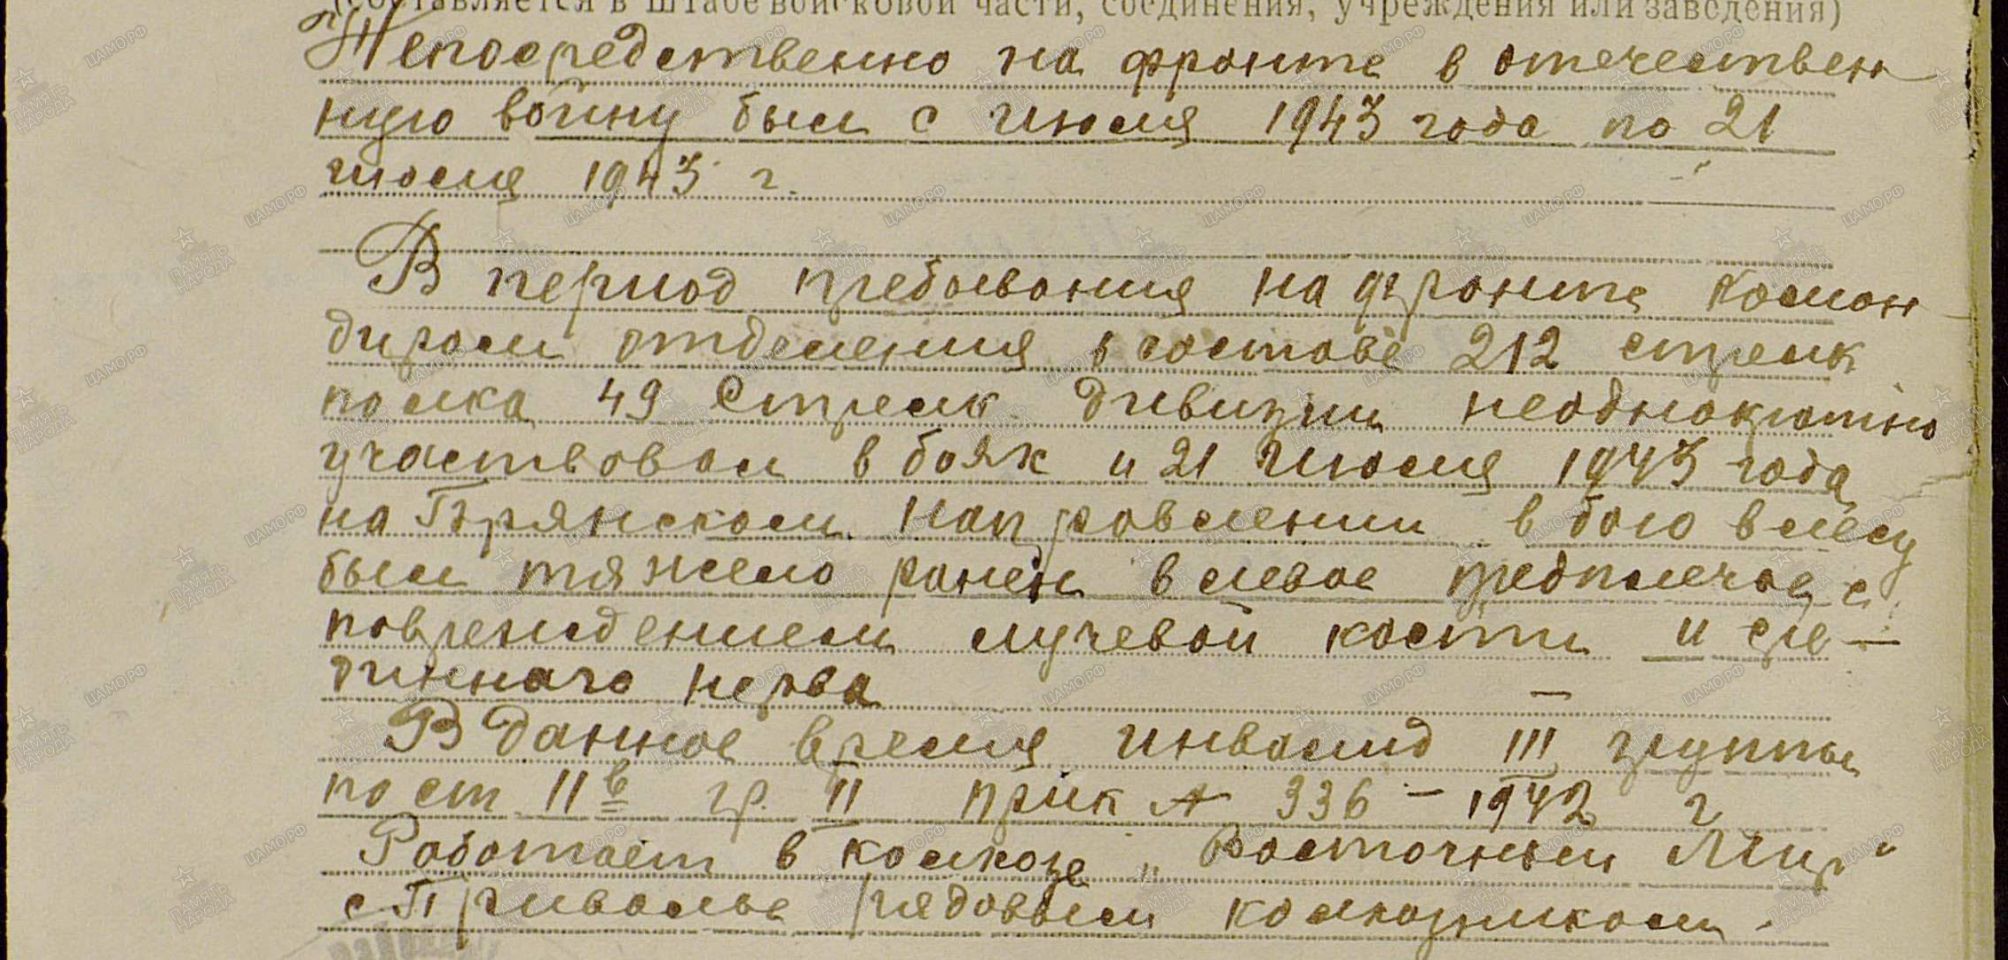 (составляется в штабе войсковой части, соединения, учреждения или заведения)
Непосредственно на фронте в отечествен
ную войну был с июля 1943 года по 21
июля 1943 г.
В период пребывания на фронте коман
диром отделения в составе 212 стрелк
полка 49 Стрелк. дивизии неоднократно
участвовал в боях и 21 июля 1943 года
на Брянском направлении в бою в лесу
был тяжело ранен в левое предплечье с
повреждением лучевой кости и сре-
динного нерва
В данное время инвалид III группы
по ст 11в гр. II прик № 336 - 1942 г
Работает в колхозе "Восточный Мир"
с Привалье рядовым колхозником.